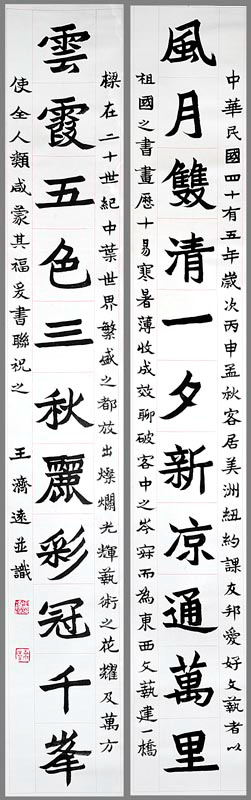 中華民國四十有五年歲次丙申孟秋客居美洲紐約課友邦愛好文藝者以
風月雙清一夕新凉通萬里
祖國之書畫歷十易寒暑薄收成效聊破客中之岑寂而為東西文藝建一橋
樑在二十世紀中葉世界繁盛之都放出燦爛光輝藝術之花耀及萬方
雲霞五色三秋麗彩冠千峯
使全人類咸蒙其福爰書聯祝之 王濟遠並識